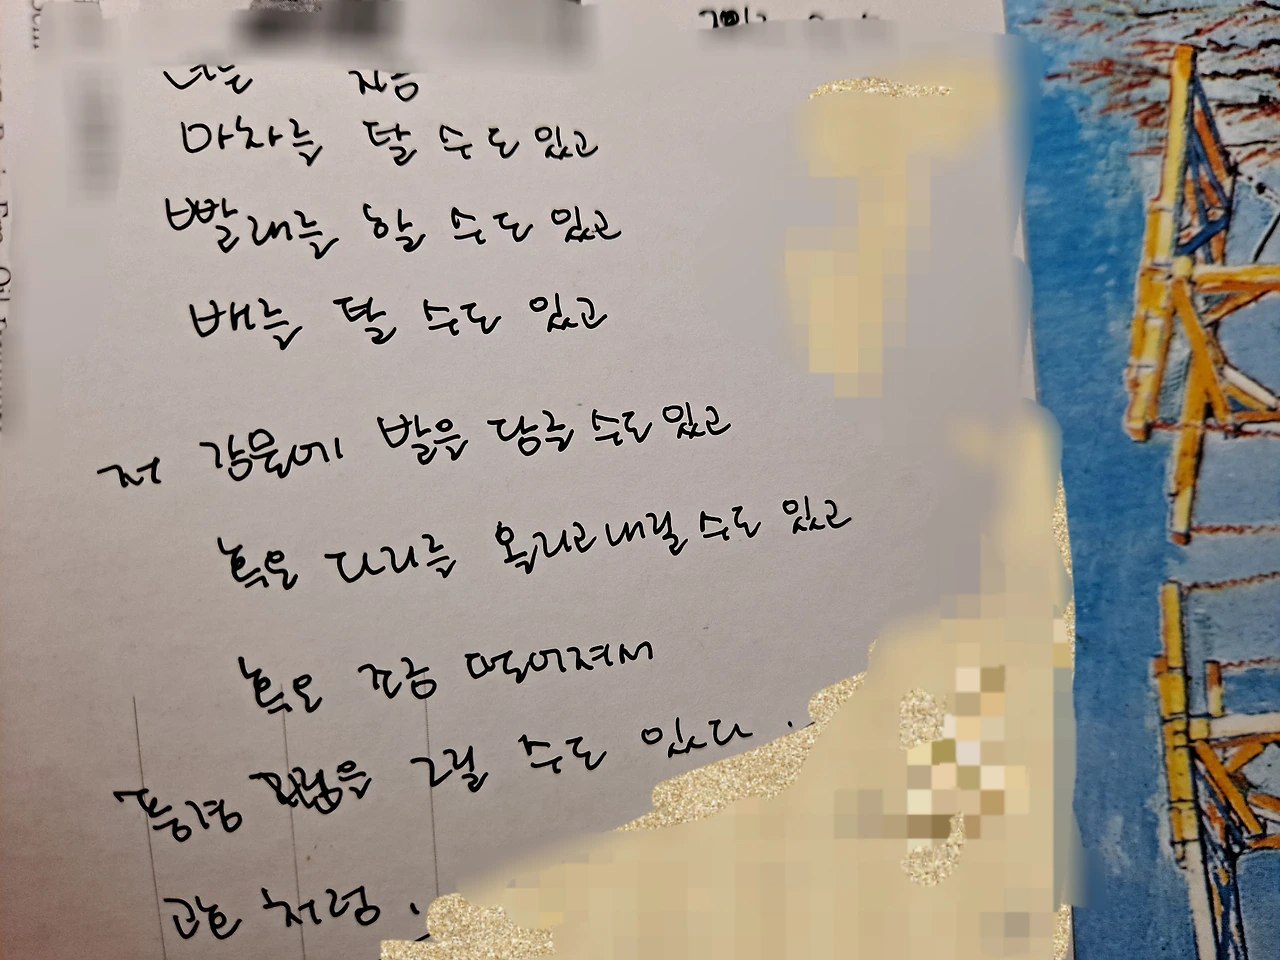 너는 지금
마차를 탈 수도 있고
빨래를 할 수도 있고
배를 탈 수도 있고
저 강물에 발을 담글 수도 있고
혹은 다리를 올리고 내릴 수도 있고
혹은 조금 떨어져서
풍경을 그릴 수도 있다.
고흐 처럼.